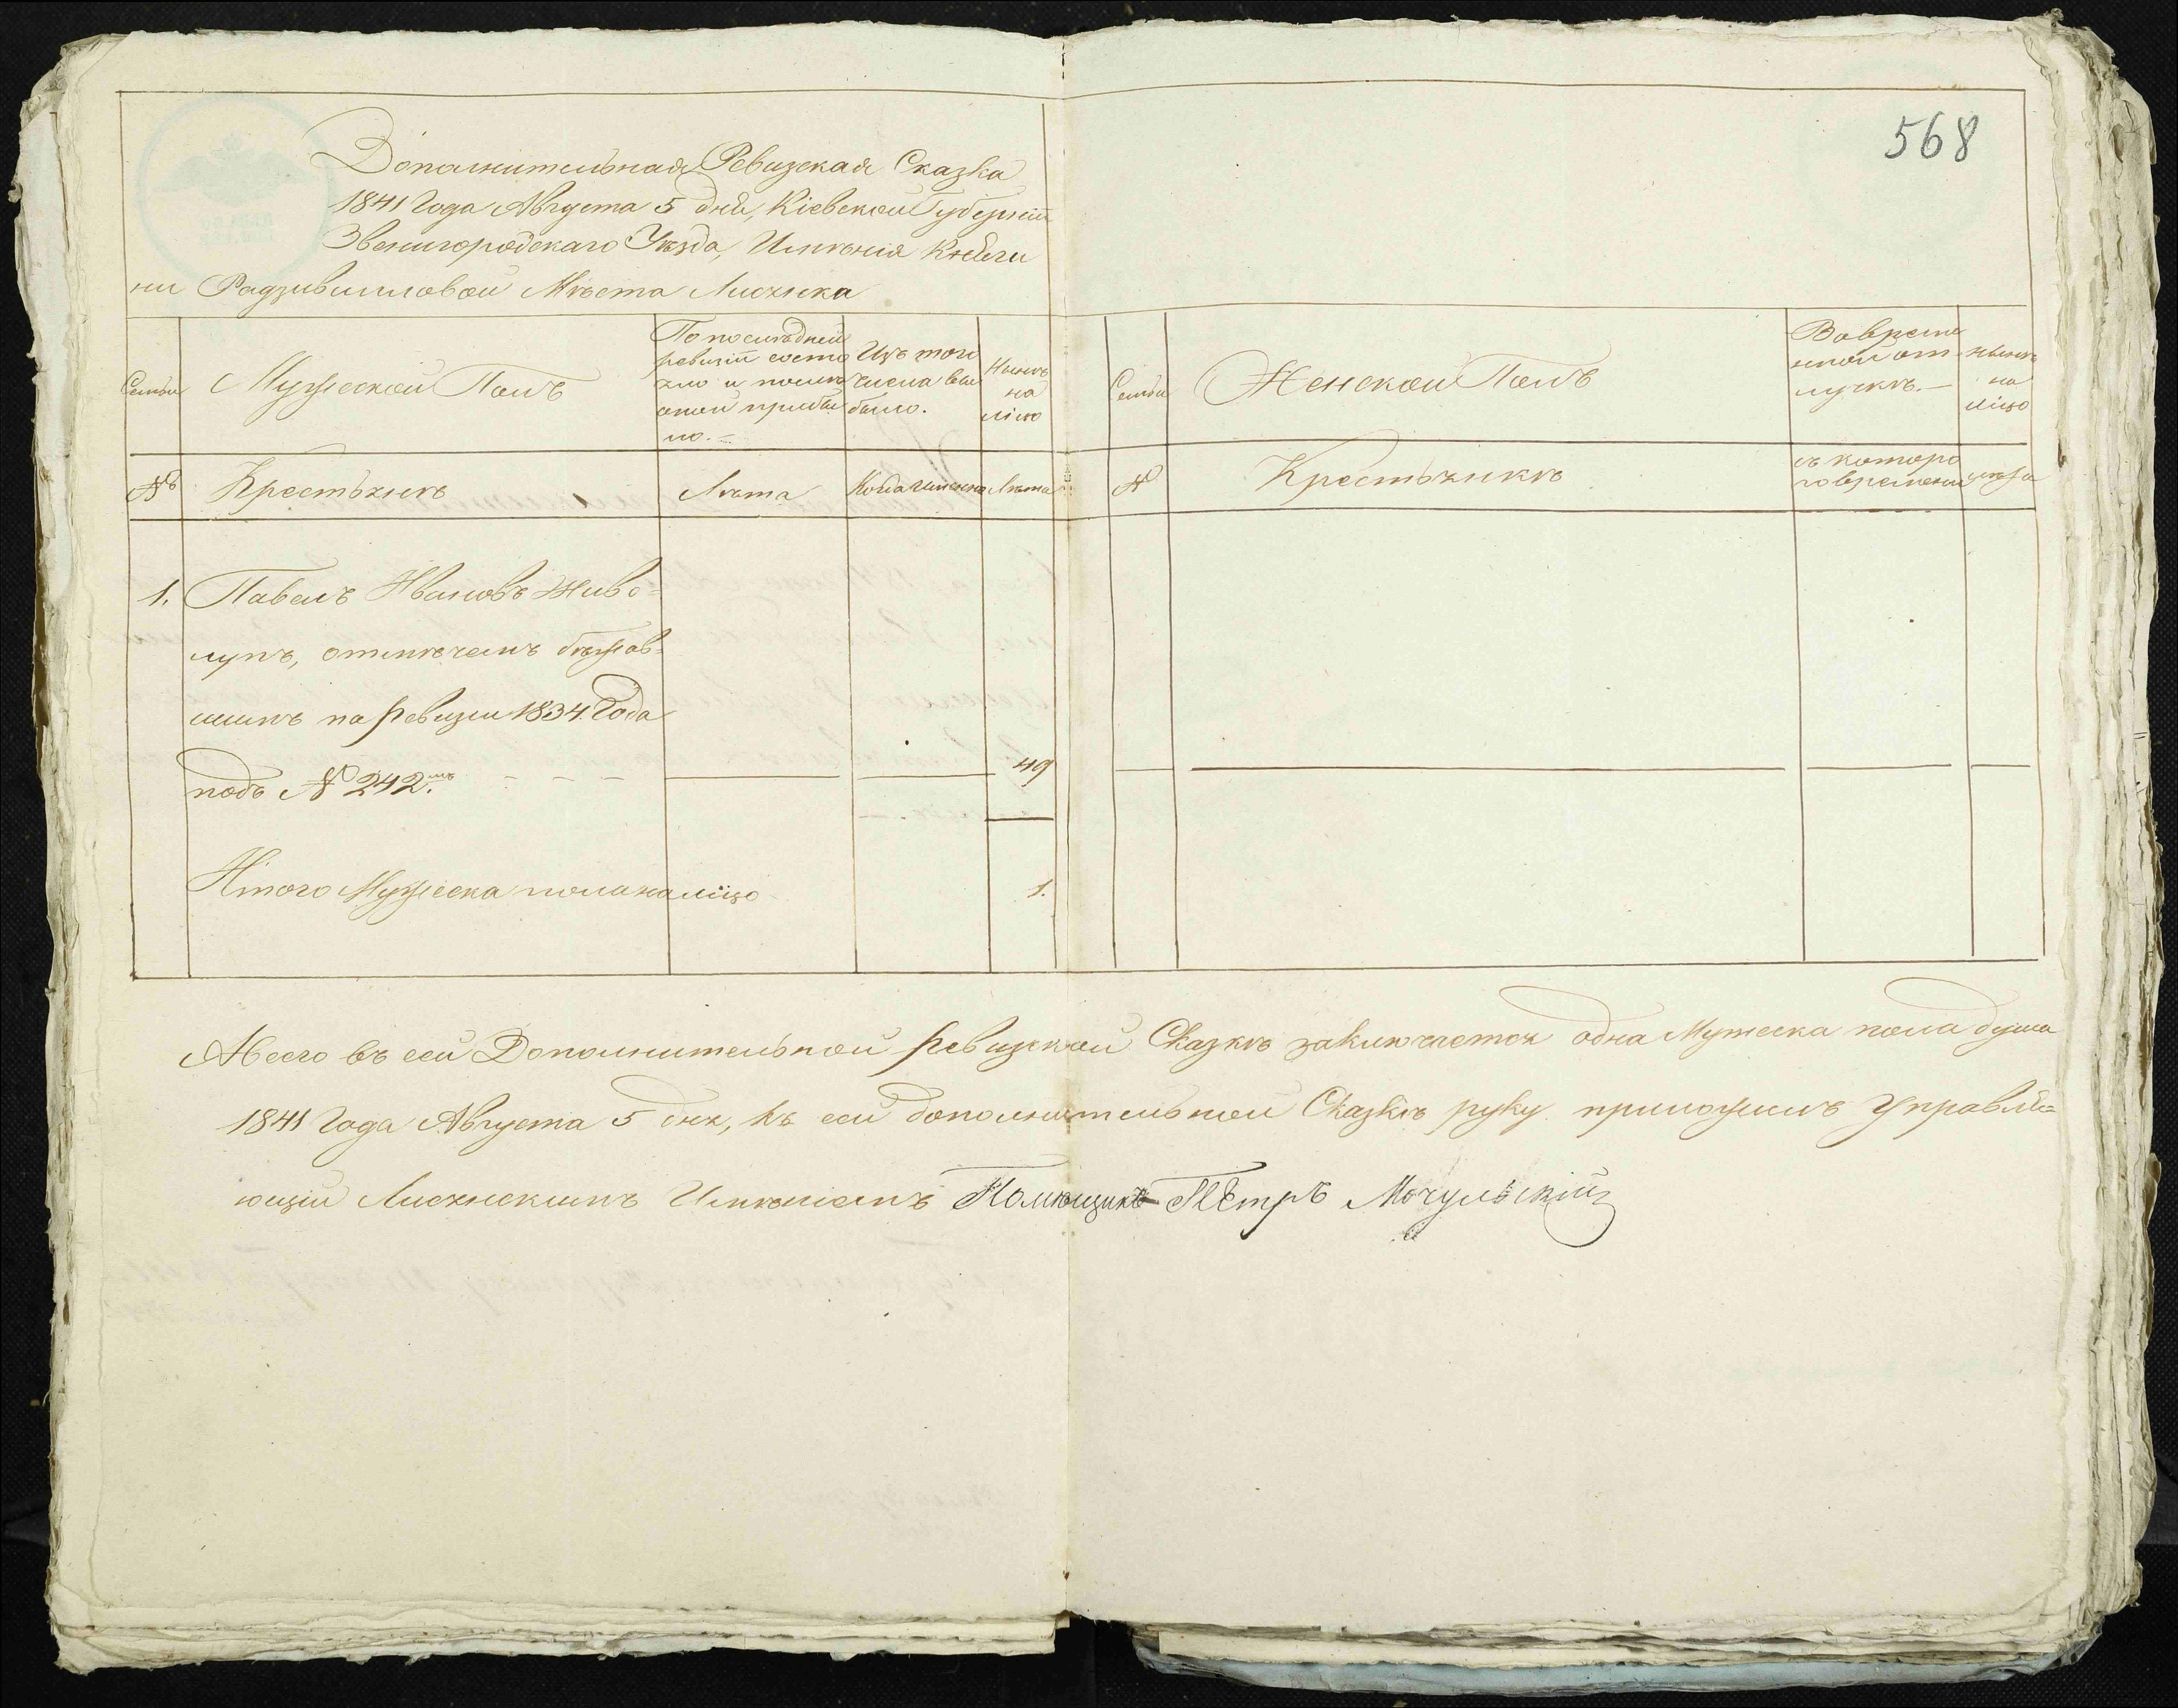 568
Дополнительная Ревизская Сказка
1841 Года Августа 5 дня, Кіевской Губерніи
Звенигородскаго Уѣзда, Имѣнія Княги
ни Радзивилловой Мѣста Лисянка
Семьи
Мужеской Полъ
По послѣдней
ревизіи состо
яло и послѣ
оной прибы
ло. –
Изъ того
числа вы
было.
Нынѣ
на
лицо
Семьи
Женской Полъ
Во време
нной от
лучкѣ. –
нынѣ
на
лицо
№
Крестьянѣ
Лѣта
Когда именно
Лѣта
№
Крестьянкѣ
съ которо
го времени
лѣта
1. Павелъ Ивановъ Живо=
лупъ, отмѣченъ бѣжав=
шимъ по ревизіи 1834. Года
подъ № 242.мъ – – – 49
Итого Мужеска пола налицо 1.
А всего въ сей Дополнительной ревизской Сказкѣ заключается одна Мужеска пола душа
1841 Года Августа 5 дня, къ сей дополнительной Сказкѣ руку приложилъ Управля=
ющій Лисянскимъ Имѣніемъ Помѣщикъ Петръ Мочульскій